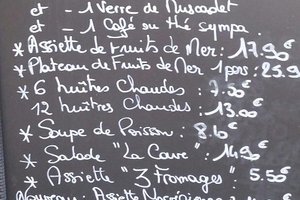 et - 1 Verre de Muscadet
et - 1 Café ou thé sympa.
* Assiette de Fruits de Mer: 17.90€
* Plateau de Fruits de Mer 1 pers: 25.9
* 6 huîtres Chaudes: 7.50€
12 huîtres Chaudes: 13.00€
* Soupe de Poisson: 8.10€
* Salade "La Cave": 14.90€
* Assiette "3 Fromages": 5.50€
Nouveau: Assiette